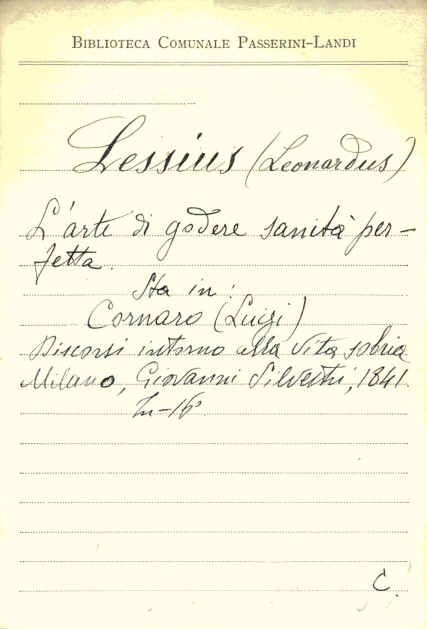 BIBLIOTECA COMUNALE PASSERINI-LANDI
Lessius (Leonardus)
L'arte di godere sanità per-
fetta.
Sta in:
Cornaro (Luigi)
Discorsi intorno alla vita sobria
Milano, Giovanni Silvestri, 1841
In-16°
C.